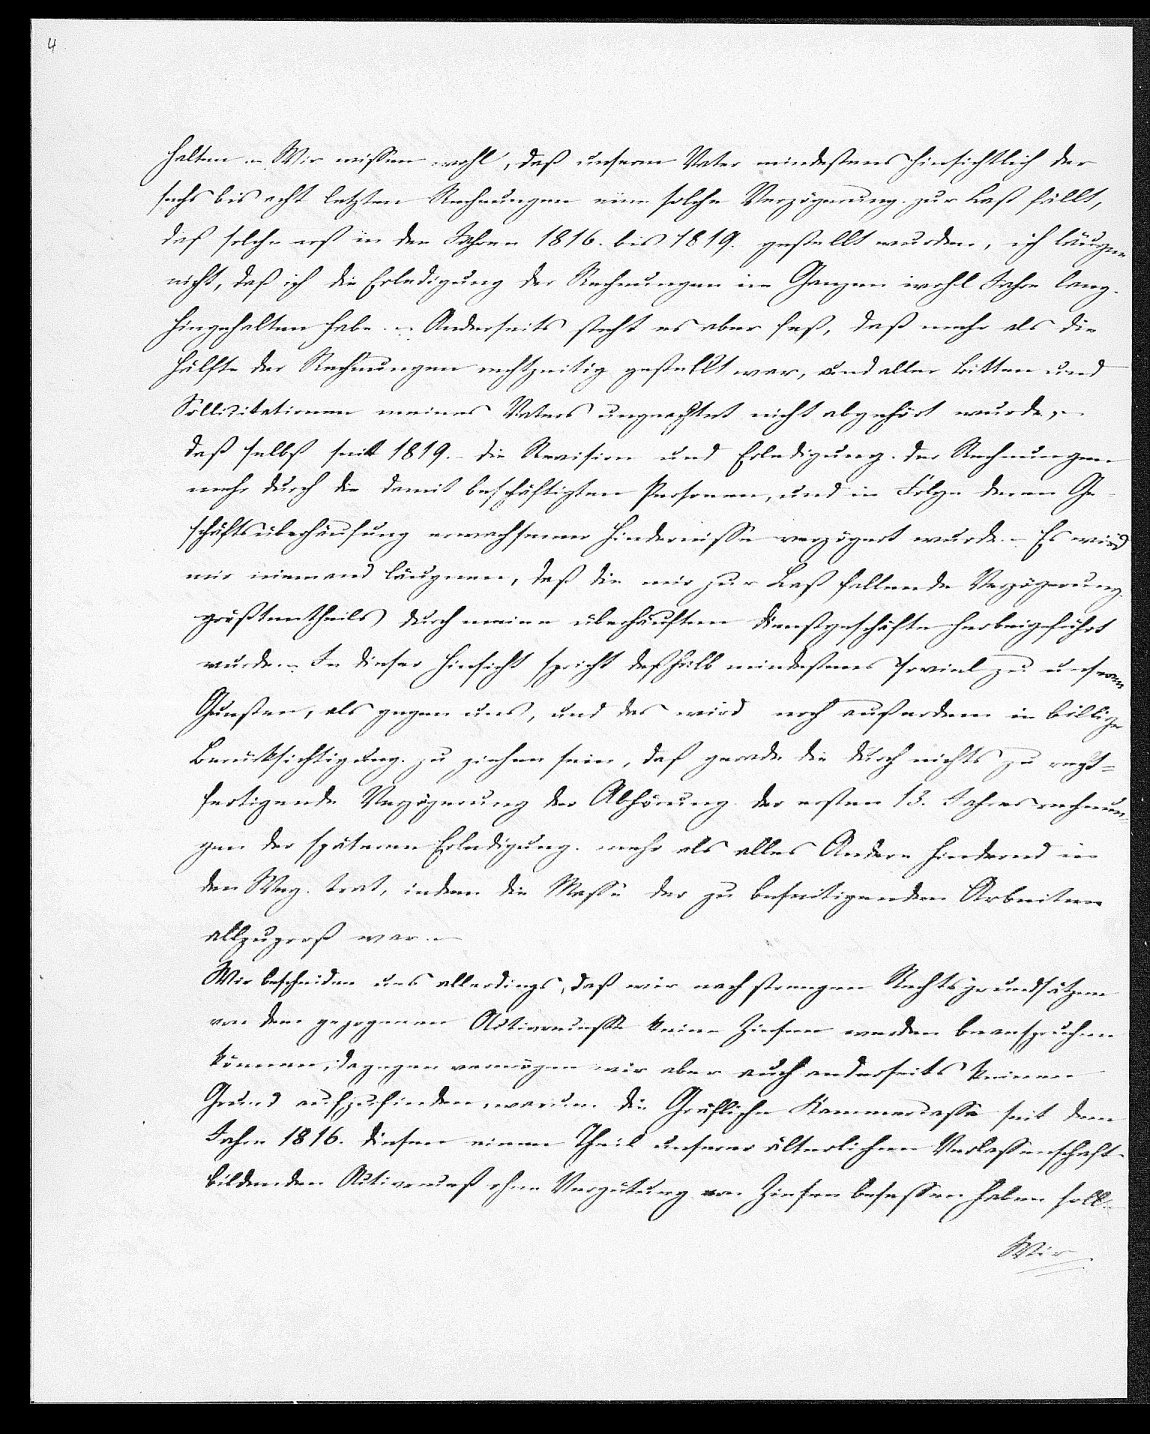 4
halten. – Wir wissen wohl, daß unserm Vater mindestens hinsichtlich der
sechs bis acht letzten Rechnungen eine solche Verzögerung zur Last fällt,
daß solche erst in den Jahren 1816. bis 1819. gestellt wurden, ich läugne
nicht, daß ich die Erledigung der Rechnungen im Ganzen wohl Jahre lang
hingehalten habe. – Anderseits steht es aber fest, daß mehr als die
Hälfte der Rechnungen rechtzeitig gestellt war, und aller Bitten und
Sollicitationen meines Vaters ungeachtet nicht abgehört wurde, –
daß selbst seit 1819. die Revision und Erledigung der Rechnungen
mehr durch die damit beschäftigten Personen, und in Folge deren Ge-
schäftsüberhäufung erwachsener Hindernisse verzögert wurde. – Es wird
mir niemand läugnen, daß die mir zur Last fallende Verzögerung
größtentheils durch meine überhäuften Dienstgeschäfte herbeigeführt
wurde. – In dieser Hinsicht spricht deßhalb mindestens soviel zu unsern
Gunsten, als gegen uns, und das wird noch außerdem in billige
Berücksichtigung zu ziehen sein, daß gerade die durch nichts zu recht=
fertigende Verzögerung der Abhörung der ersten 13. Jahresrechnun-
gen der späteren Erledigung mehr als alles Andere hindernd in
den Weg trat, indem die Masse der zu beseitigenden Arbeiten
allzugroß war. –
Wir bescheiden uns allerdings, daß wir nach strengen Rechtsgrundsätzen
von dem gezogenen Activreceß keine Zinsen werden beanspruchen
können, dagegen vermögen wir aber auch anderseits keinen
Grund aufzufinden, warum die Gräfliche Kammercasse seit dem
Jahre 1816. diesen einen Theil unserer älterlichen Verlassenschaft
bildenden Activreceß ohne Vergütung von Zinsen besessen haben soll. –
Wir